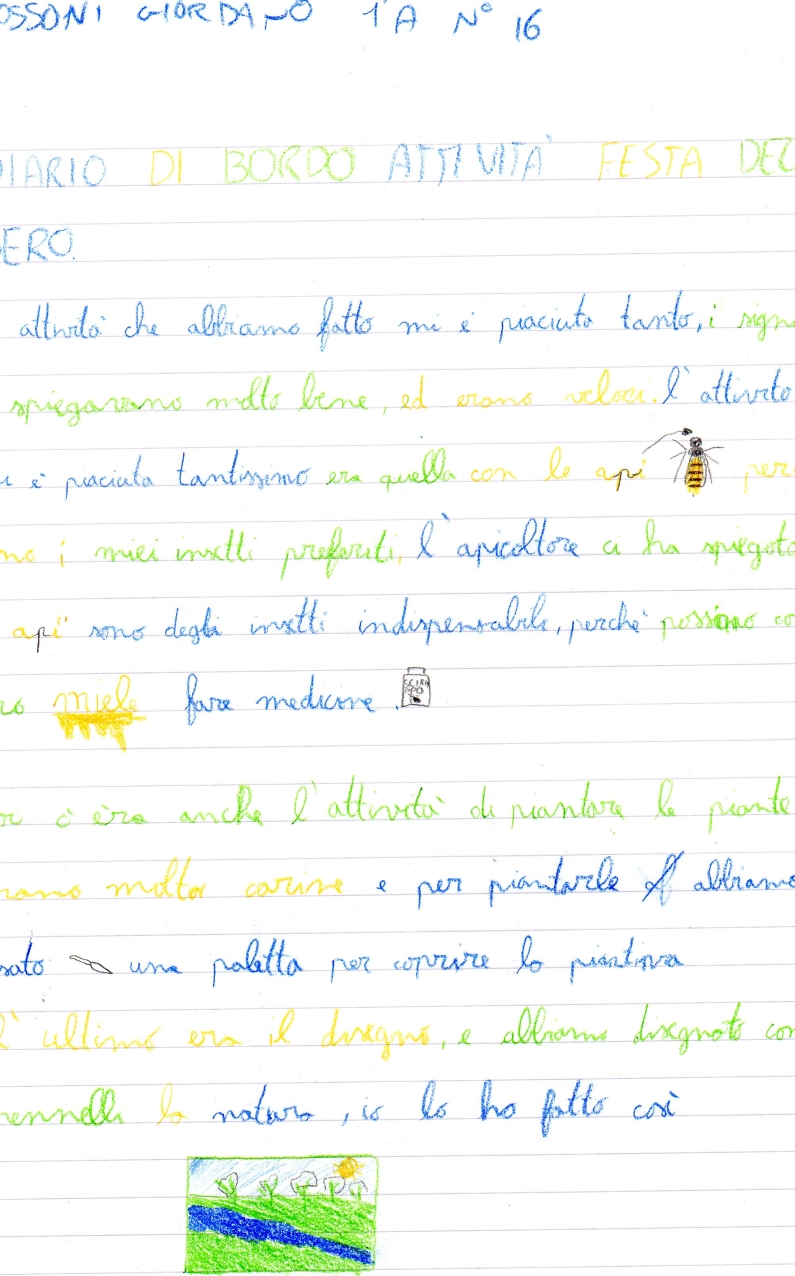 OSSONI GIORDANO 1ªA N° 16
DIARIO DI BORDO ATTIVITÀ FESTA DEL
ERO.
attività che abbiamo fatto mi è piaciuta tanto, i signo
spiegavano molto bene, ed erano veloci. L'attività
i è piaciuta tantissimo era quella con le api per
no i miei insetti preferiti, l'apicoltore ci ha spiegato
api sono degli insetti indispensabili, perché possono co
ro miele fare medicine.
oi c'èra anche l'attività di piantare le piante
rano molto carine e per piantarle abbiamo
sato una paletta per coprire la piantina
L'ultima era il disegno, e abbiamo disegnato con
pennelli la natura, io lo ho fatto così